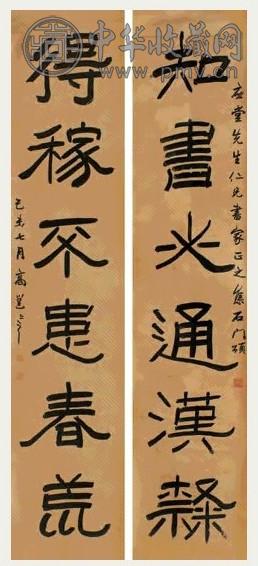 中华收藏网
www.pmv.cn
堂先生仁兄書家正之集石門頌
知書必通漢隸
得稼不患春荒
己未七月高邕之